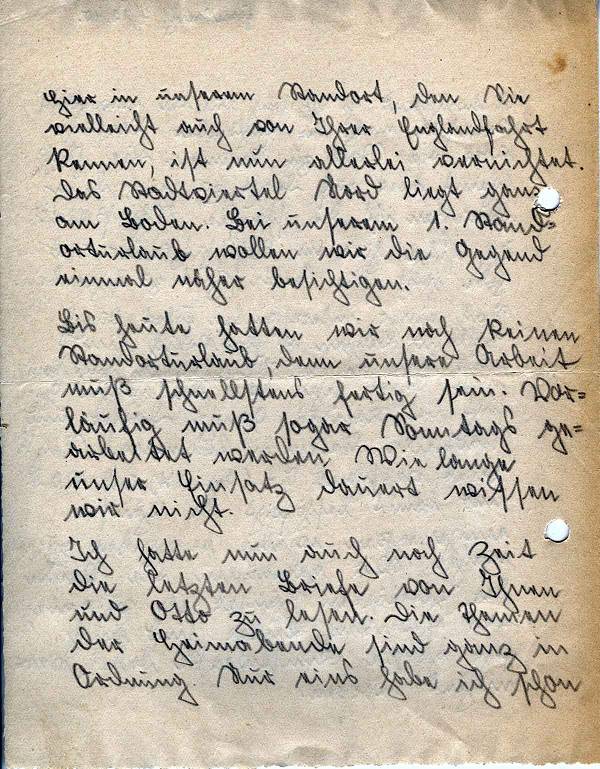 Hier in unserem Standort, den Sie
vielleicht auch von Ihrer Englandfahrt
kennen, ist nun allerlei vernichtet.
Das Stadtviertel Nord liegt ganz
am Boden. Bei unserem 1. Stand-
orturlaub wollen wir die Gegend
einmal näher besichtigen.
Bis heute hatten wir noch keinen
Standorturlaub, denn unsere Arbeit
muß schnellstens fertig sein. Vor=
läufig muß sogar Sonntags ge=
arbeitet werden. Wie lange
unser Einsatz dauert wissen
wir nicht.
Ich hatte nun auch noch Zeit
die letzten Briefe von Ihnen
und Otto zu lesen. Die Themen
der Heimabende sind ganz in
Ordnung. Nur eins habe ich schon